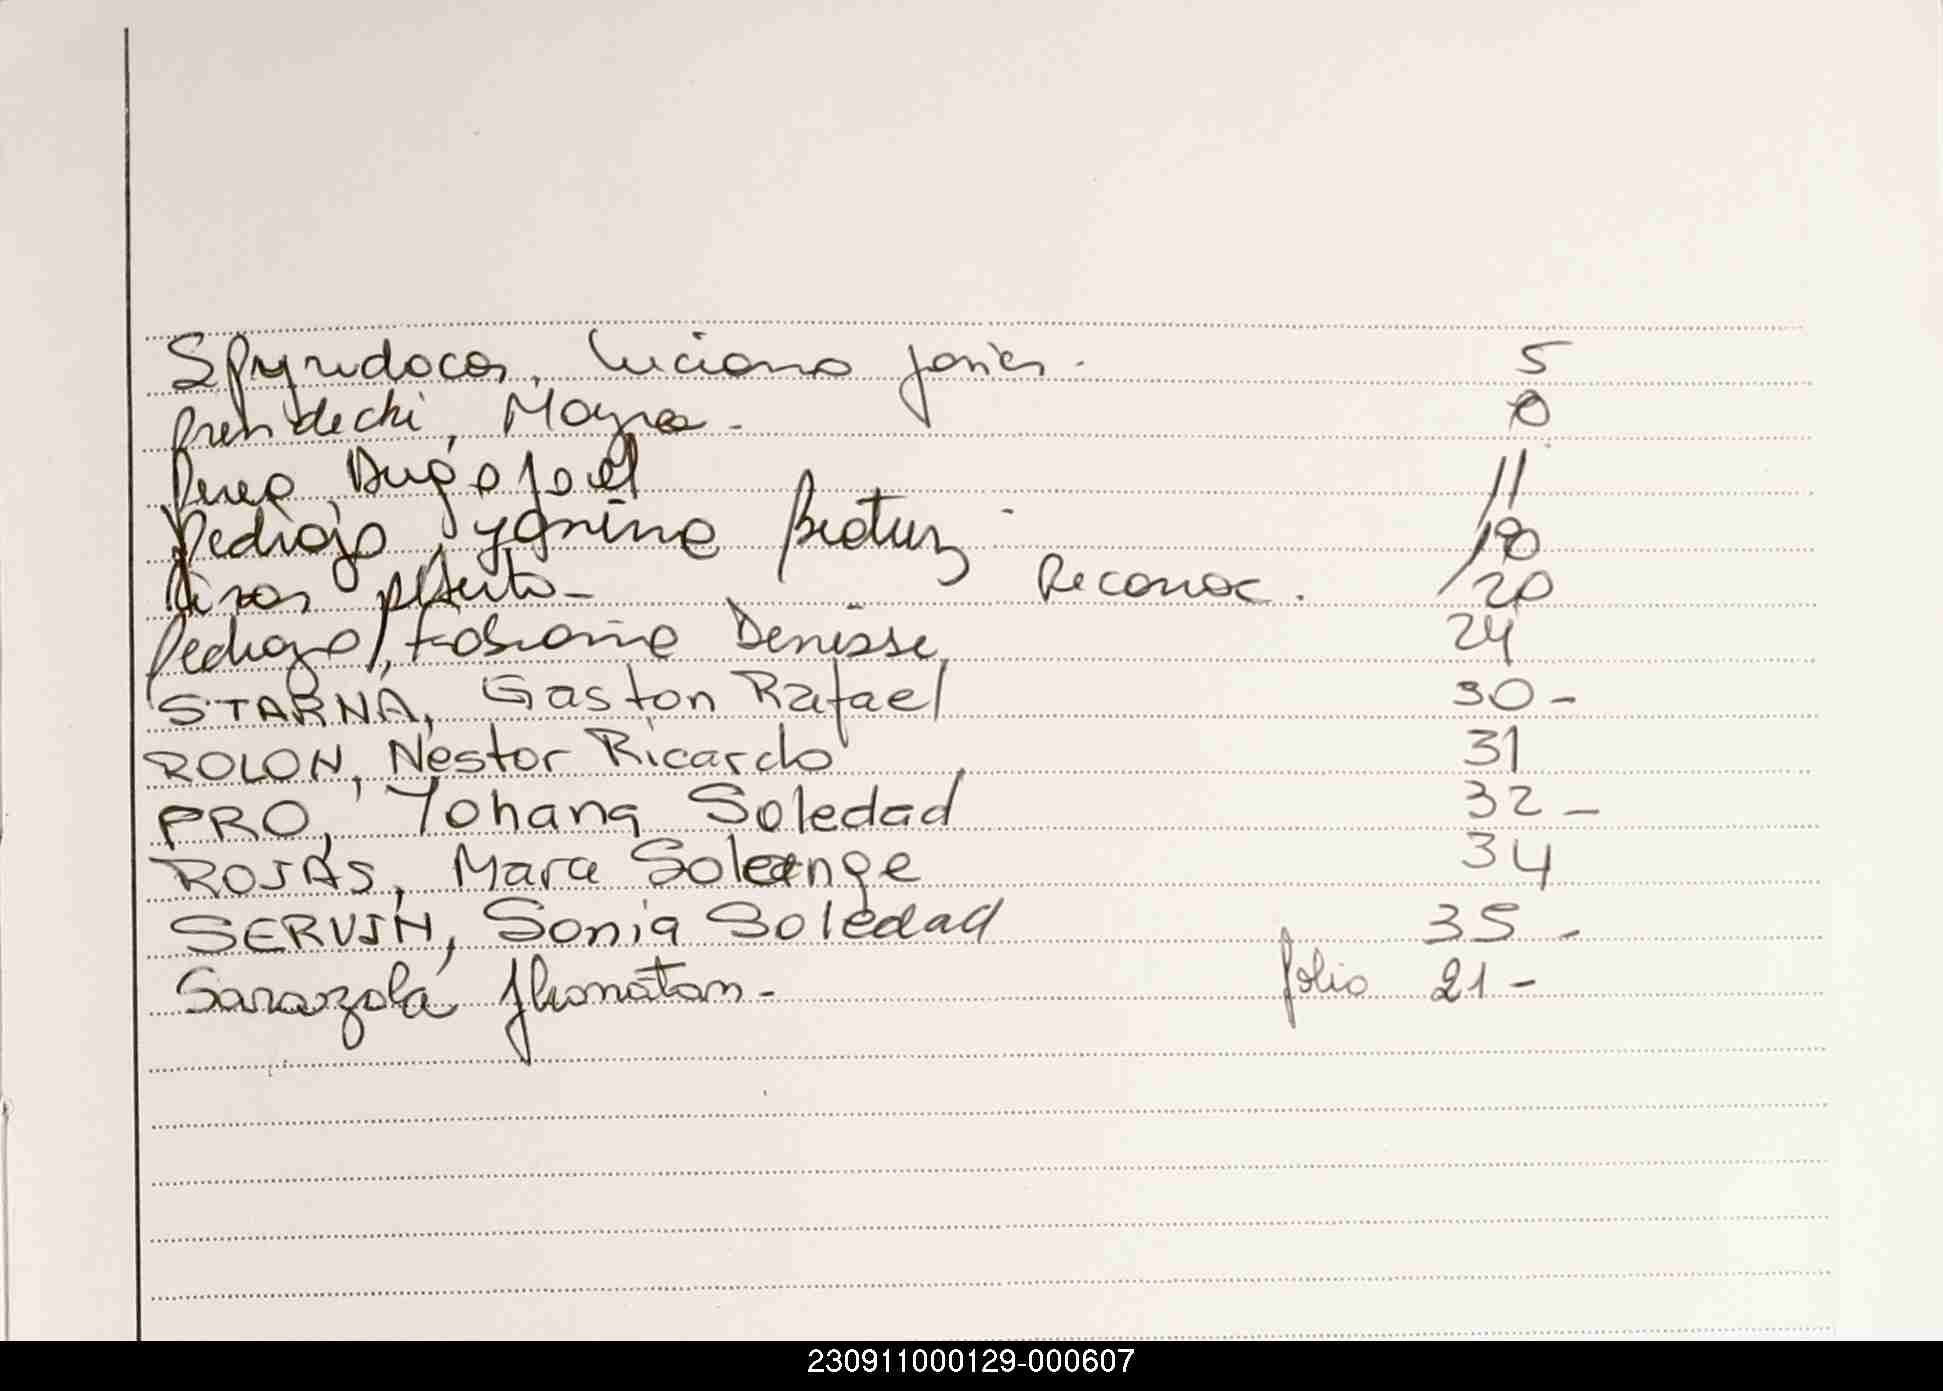 Spyridocos, Luciano Javier. 5
Presidechi, Mayra. 8
Perez, Hugo Joel 11
Pedrozo, Yanina Beatriz - 190
Rivas Alberto - Reconoc. 20
Pedrozo, Fabiana Denisse, 24
STARNA, Gaston Rafael 30 -
ROLON, Néstor Ricardo 31
PRO, Yohana Soledad 32 -
ROJAS, Mara Solange 34
SERVIN, Sonia Soledad 35 -
Sarazola Jhonatan - folio 21 -
230911000129-000607